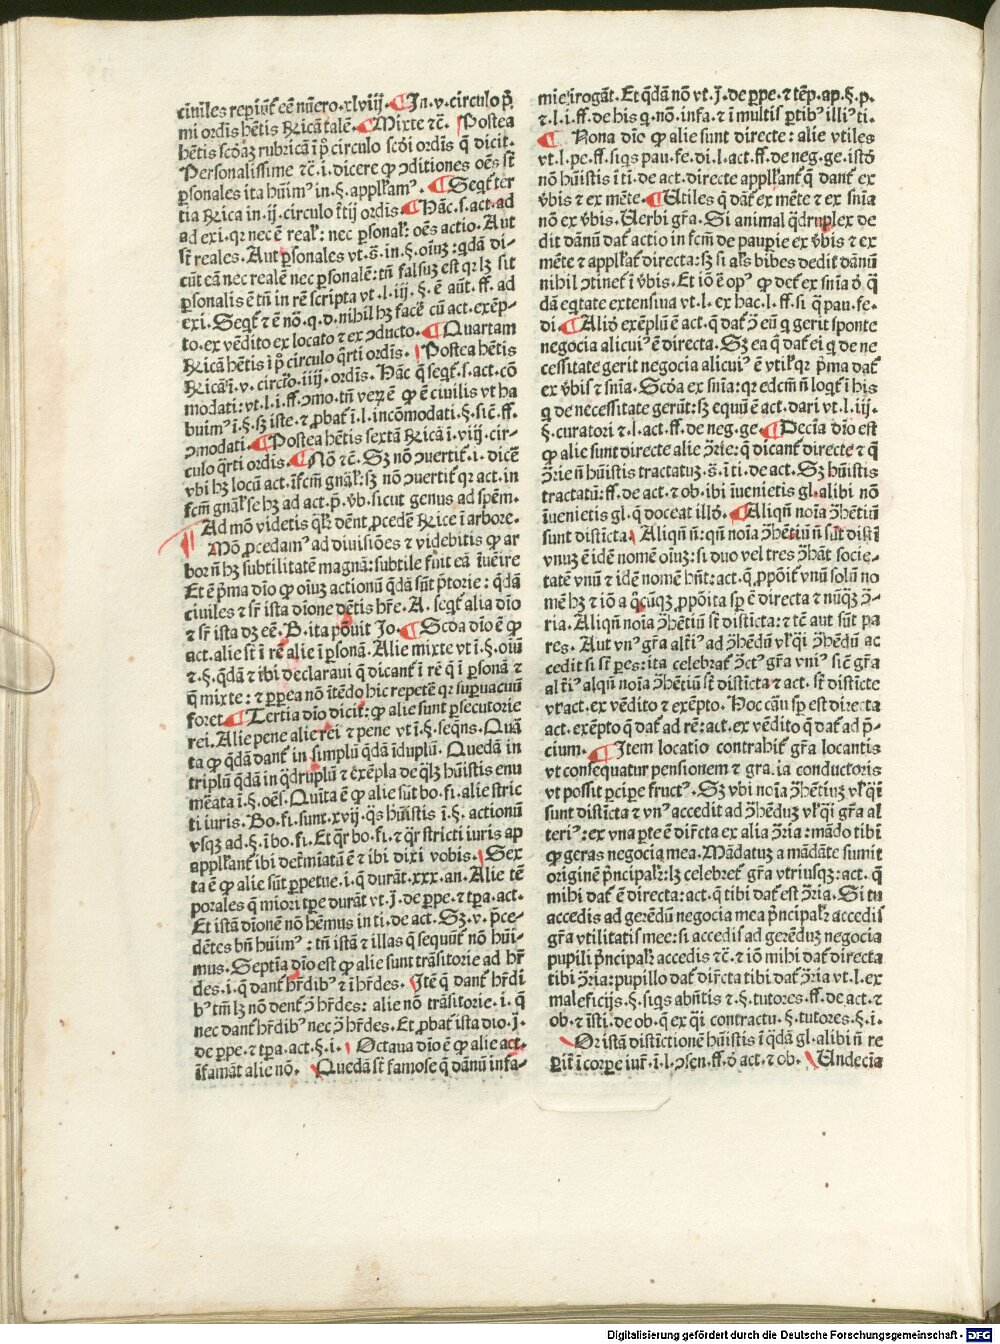 ciuiles reperiūt eē nūero.xlviij.¶In.v.circulo p̄
mi ordīs hētis Ricā talē.¶Mixte ⁊c̄. Postea
hētis scḋaꝫ rubricā ī p̄ circulo scḋi ordīs q̄ dicit.
Personalissime ⁊c̄.i.dicere ꝙ ꝯditiones oēs st̄
ꝑsonales ita hūimꝰ in.§.applr̄amꝰ.¶Seqt̄ ter
tia Rica in.ij.circulo t̄tij ordīs.¶Hāc.s.act.ad
ad exi.qꝛ nec ē realꝭ: nec ꝑsonalꝭ: oēs actio.Aut
st̄ reales.Aut ꝑsonales vt.s̄.in.§.oīuꝫ: qḋā di-
cūt eā nec realē nec ꝑsonalē: tn̄ falsuꝫ est qꝛ lꝫ sit
ꝑsonalis ē tn̄ in rē scripta vt.l.iij.§.ē aūt.ff.ad
exi.Seqt̄ ⁊ ē nō.q.d.nihil hꝫ facē cū act.exēp-
to.ex vēdito ex locato ⁊ ex ꝯducto.¶Quartam
Ricā hētis ī p̄ circulo q̄rti ordīs. Postea hētis
Ricā ī.v.circīo.iiij.ordīs.Hāc q̄ seqt̄.s.act.cō
modati: vt.l.i.ff.ꝯmo.tn̄ veꝝ ē ꝙ ē ciuilis vt ha
buimꝰ ī.§.sꝫ iste.⁊ ꝓbat̄ ī.l.incōmodati.§.sic̄.ff.
ꝯmodati.¶Postea hētis sextā Ricā ī.viij.cir-
culo q̄rti ordīs.¶Nō ⁊c̄.Sꝫ nō ꝯuertit̄.i.dicē
vbi hꝫ locū act.īfcm̄ gnālꝭ: sꝫ nō ꝯuertit̄ qꝛ act.in
fcm̄ gnālꝭ se hꝫ ad act.p̄.v̄b.sicut genus ad spēm.
Ad mō videtis q̄lr̄ dēnt ꝓcedē Rice ī arbore.
¶Mō ꝓcedamꝰ ad diuisiōes ⁊ videbitis ꝙ ar
bor n̄ hꝫ subtilitatē magnā: subtile fuit eā īuēire
Et ē p̄ma dīo ꝙ oīuꝫ actionū qḋā sūt p̄torie: qḋā
ciuiles ⁊ sr̄ ista dīone dētis hr̄e.A.seqt̄ alia dīo
⁊ sr̄ ista dꝫ eē.B.ita pōuit Jo.¶Scḋa dīo ē ꝙ
act.alie st̄ ī rē alie ī ꝑsonā.Alie mixte vt ī.§.oīū
⁊.§.qḋā ⁊ ibi declaraui q̄ dicant̄ ī rē q̄ ī ꝑsonā ⁊
q̄ mixte: ⁊ ꝓpꝑea nō ītēdo hic repetē qꝛ suꝑuacuū
foret.¶Tertia dīo dicit̄: ꝙ alie sunt ꝑsecutorie
rei.Alie pene alie rei ⁊ pene vt ī.§.seqn̄s.Quā
ta ꝙ qḋā dant̄ in simplū qḋā īduplū.Quedā in
triplū qḋā in q̄druplū ⁊ exēpla de q̄lꝫ hūistis enu
mēata ī.§.oēs.Quīta ē ꝙ alie sūt bo.fi.alie stric
ti iuris.Bo.fi.sunt.xvij.q̄s hūistis ī.§.actionū
vsqꝫ ad.§.ī bo.fi.Et q̄r bo.fi.⁊ q̄r stricti iuris ap
applr̄ant̄ ibi det̄mīatū ē ⁊ ibi dixi vobis. Sex
ta ē ꝙ alie sūt ꝑpetue.i.q̄ durāt.xxx.an.Alie tē
porales q̄ miori tꝑe durāt vt.J.de ꝑpe.⁊ tꝑa.act.
Et istā dīonē nō hēmus in ti.de act.Sꝫ.v.p̄ce-
dētes bn̄ hūimꝰ: tn̄ istā ⁊ illas q̄ sequūt̄ nō hūi-
mus.Septīa dīo est ꝙ alie sunt trāsitorie ad hr̄
des.i.q̄ dant̄ hr̄dibꝰ ⁊ ī hr̄des. Itē q̄ dant̄ hr̄di
bꝰ tm̄ lꝫ nō dent̄ ꝯ̄ hr̄des: alie nō trāsitorie.i.q̄
nec dant̄ hr̄dibꝰ nec ꝯ̄ hr̄des.Et ꝓbat̄ ista dīo.J.
de ꝑpe.⁊ tꝑa.act.§.i. Octaua dīo ē ꝙ alie act.
īfamāt alie nō. Quedā st̄ famose q̄ dānū infa-
mie irogāt.Et qḋā nō vt.J.de ꝑpe.⁊ tēp.ap.§.p.
⁊.l.i.ff.de his q̄.nō.infa.⁊ ī multis ꝑtibꝰ illiꝰ ti.
¶Nona dīo ꝙ alie sunt directe: alie vtiles
vt.l.pe.ff.siqs pau.fe.di.l.act.ff.de neg.ge.istō
nō hūistis ī ti.de act.directe applr̄ant̄ q̄ dant̄ ex
v̄bis ⁊ ex mēte.¶Utiles q̄ dāt̄ ex mēte ⁊ ex sn̄ia
nō ex v̄bis.Uerbi gr̄a.Si animal q̄druplex de
dit dānū dat̄ actio in fcm̄ de pauꝑie ex v̄bis ⁊ ex
mēte ⁊ applr̄at̄ directa: sꝫ si alꝭs bibes dedit dānū
nihil ꝯtinet̄ ī v̄bis.Et iō ē opꝰ ꝙ det̄ ex sn̄ia ō q̄
dā eq̄tate extensiua vt.l.ex hac.l.ff.si q̄ pau.fe.
di.¶Aliō exēplū ē act.q̄ dat̄ ꝯ̄ eū q̄ gerit sponte
negocia alicuiꝰ ē directa.Sꝫ ea q̄ dat̄ ei q̄ de ne
cessitate gerit negocia alicuiꝰ ē vtilꝭ qꝛ p̄ma dat̄
ex v̄bis ⁊ sn̄ia.Scḋa ex sn̄ia: qꝛ edcm̄ n̄ loqt̄ ī his
q̄ de necessitate gerūt: sꝫ equū ē act.dari vt.l.iij.
§.curatori ⁊.l.act.ff.de neg.ge.¶Decīa dīo est
ꝙ alie sunt directe alie ꝯ̄rie: q̄ dicant̄ directe ⁊ q̄
ꝯ̄rie n̄ hūistis tractatuꝫ.s̄.ī ti.de act.Sꝫ hūistis
tractatū: ff.de act.⁊ ob.ibi īuenietis gl.alibi nō
īuenietis gl.q̄ doceat illō.¶Aliqn̄ noīa ꝯ̄hētiū
sunt disticta. Aliqn̄ n̄: qn̄ noīa ꝯ̄hētiū n̄ sūt distī
vnuꝫ ē idē nomē oīuꝫ: si duo vel tres ꝯ̄hāt socie-
tatē vnū ⁊ idē nomē hn̄t: act.q̄ ꝓpōit̄ vnū solū no
mē hꝫ ⁊ iō a q̄cūqꝫ ꝓpōita sꝑ ē directa ⁊ nūq̄ꝫ ꝯ̄-
ria.Aliqn̄ noīa ꝯ̄hētiū st̄ disticta: ⁊ tē aut sūt pa
res. Aut vnꝰ gr̄a alt̄iꝰ ad ꝯ̄hēdū vlꝭqi ꝯ̄hēdū ac
cedit si st̄ pes: ita celebrat̄ ꝯ̄ctꝰ gr̄a vniꝰ sic̄ gr̄a
alt̄iꝰ alqn̄ noīa ꝯ̄hētiū st̄ disticta ⁊ act.st̄ disticte
vt act.ex vēdito ⁊ exēpto.Hoc cāu sꝑ est directa
act.exēpto q̄ dat̄ ad rē: act.ex vēdito q̄ dat̄ ad p̄-
cium.¶Item locatio contrahit̄ gr̄a locantis
vt consequatur pensionem ⁊ gra.ia conductoris
vt possit ꝑcipe fructꝰ.Sꝫ vbi noīa ꝯ̄hētiuꝫ vlꝭq̄i
sunt disticta ⁊ vnꝰ accedit ad ꝯ̄hēduꝫ vlꝭqi gr̄a al
teriꝰ: ex vna ꝑte ē dir̄cta ex alia ꝯ̄ria: mādo tibi
ꝙ geras negocia mea.Mādatuꝫ a mādāte sumit
originē p̄ncipalr̄: lꝫ celebret̄ gr̄a vtriusqꝫ: act.q̄
mihi dat̄ ē directa: act.q̄ tibi dat̄ est ꝯ̄ria.Si tu
accedis ad gerēdū negocia mea p̄ncipalr̄ accedis
gr̄a vtilitatis mee: si accedis ad gerēduꝫ negocia
pupili p̄ncipalr̄ accedis ⁊c̄.⁊ iō mihi dat̄ directa
tibi ꝯ̄ria: pupillo dat̄ dir̄cta tibi dat̄ ꝯ̄ria vt.l.ex
maleficijs.§.siqs abn̄tis ⁊.§.tutores.ff.de act.⁊
ob.⁊ īsti.de ob.q̄ ex q̄i contractu.§.tutores.§.i.
Or istā distictionē hūistis ī qḋā gl.alibi n̄ re
ꝑit̄ ī corpe iur̄.i.l.ꝯsen.ff.ō act.⁊ ob. Undecīa
Digitalisierung gefördert durch die Deutsche Forschungsgemeinschaft - DFG